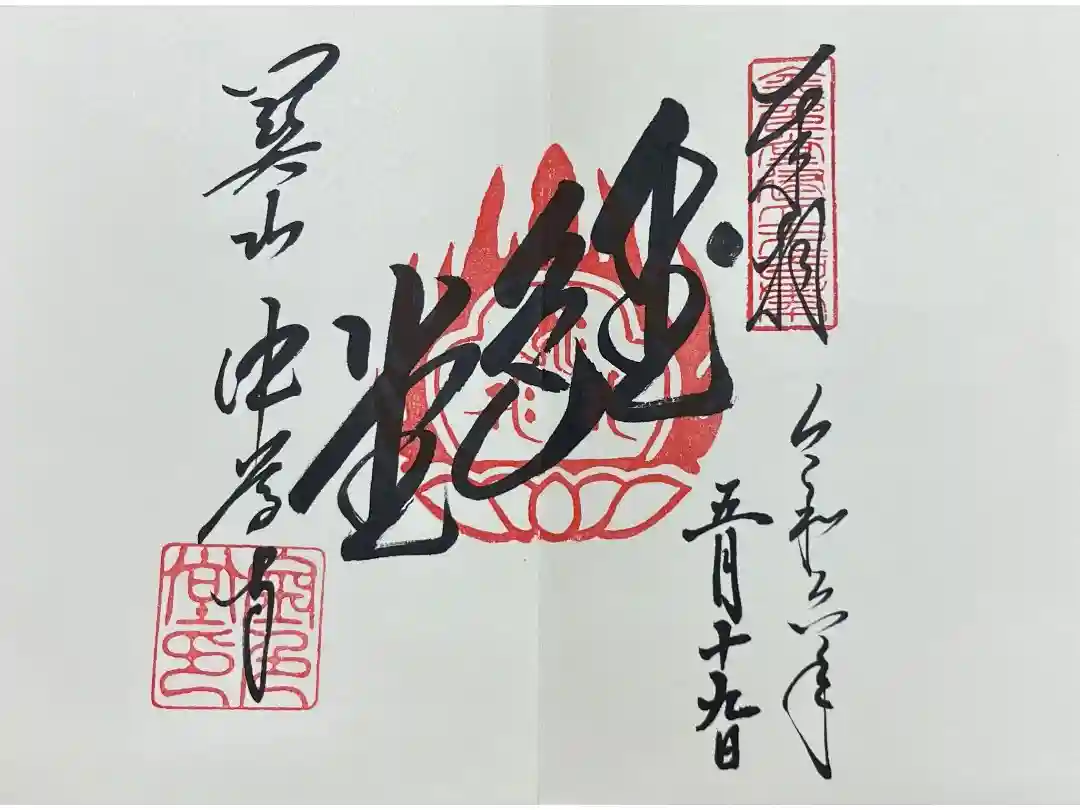 奉拝
令和六年
五月十九日
金色堂
関山 中尊寺
金色堂印